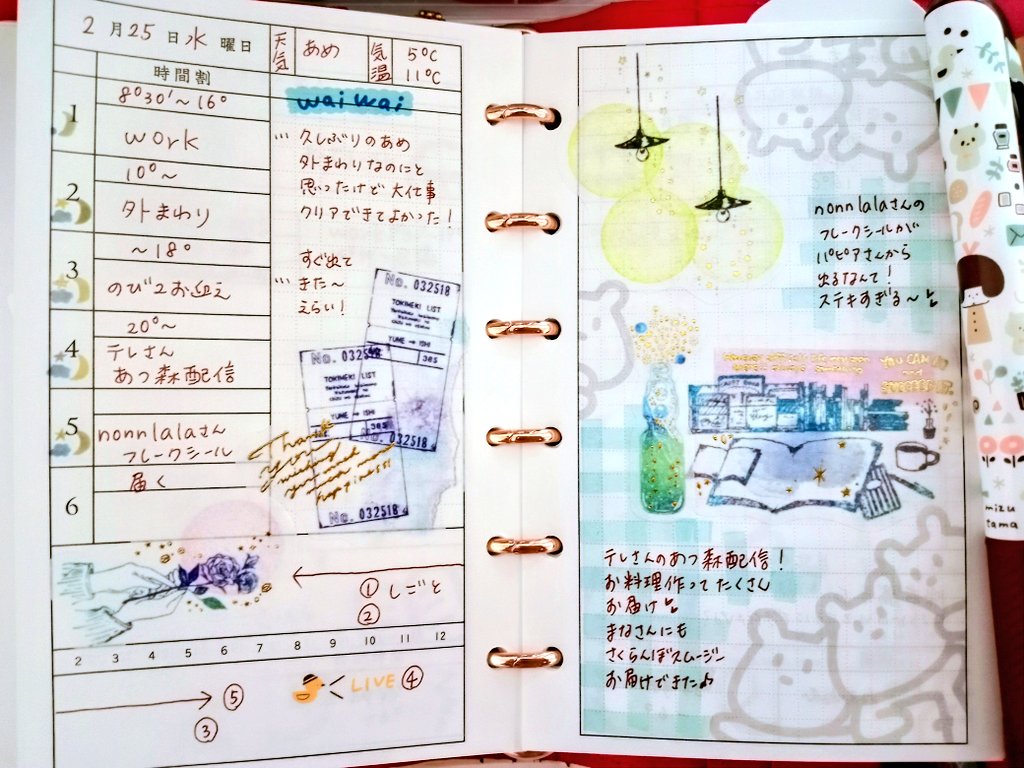 2 月 25 日 水 曜日
天気 あめ 気温 5℃
11℃
時間割
waiwai
1
8°30'~16°
work
2
10°~
外まわり
3
~18°
のび2お迎え
4
20°~
テレさん
あつ森配信
5
nonnlalaさん
フレークシール
6
届く
久しぶりのあめ
外まわりなのにと
思ったけど 大仕事
クリアできてよかった!
すぐ出て
きた~
えらい!
No. 032518
TOKIMEKI LIST
YUME → ISHI
385
No. 032518
TOKIMEKI LIST
YUME → ISHI
385
No. 032518
No. 032518
Thank
you
① しごと
②
2 3 4 5 6 7 8 9 10 11 12
⑤
③
LIVE ④
nonnlalaさんの
フレークシールが
パピアさんから
出るなんて!
ステキすぎる~
YOU CAN DO
and
SUCCEED IT.
テレさんのあつ森配信!
お料理作ってたくさん
お届け
まなさんにも
さくらんぼスムージー
お届けできた♪
mizu
tama